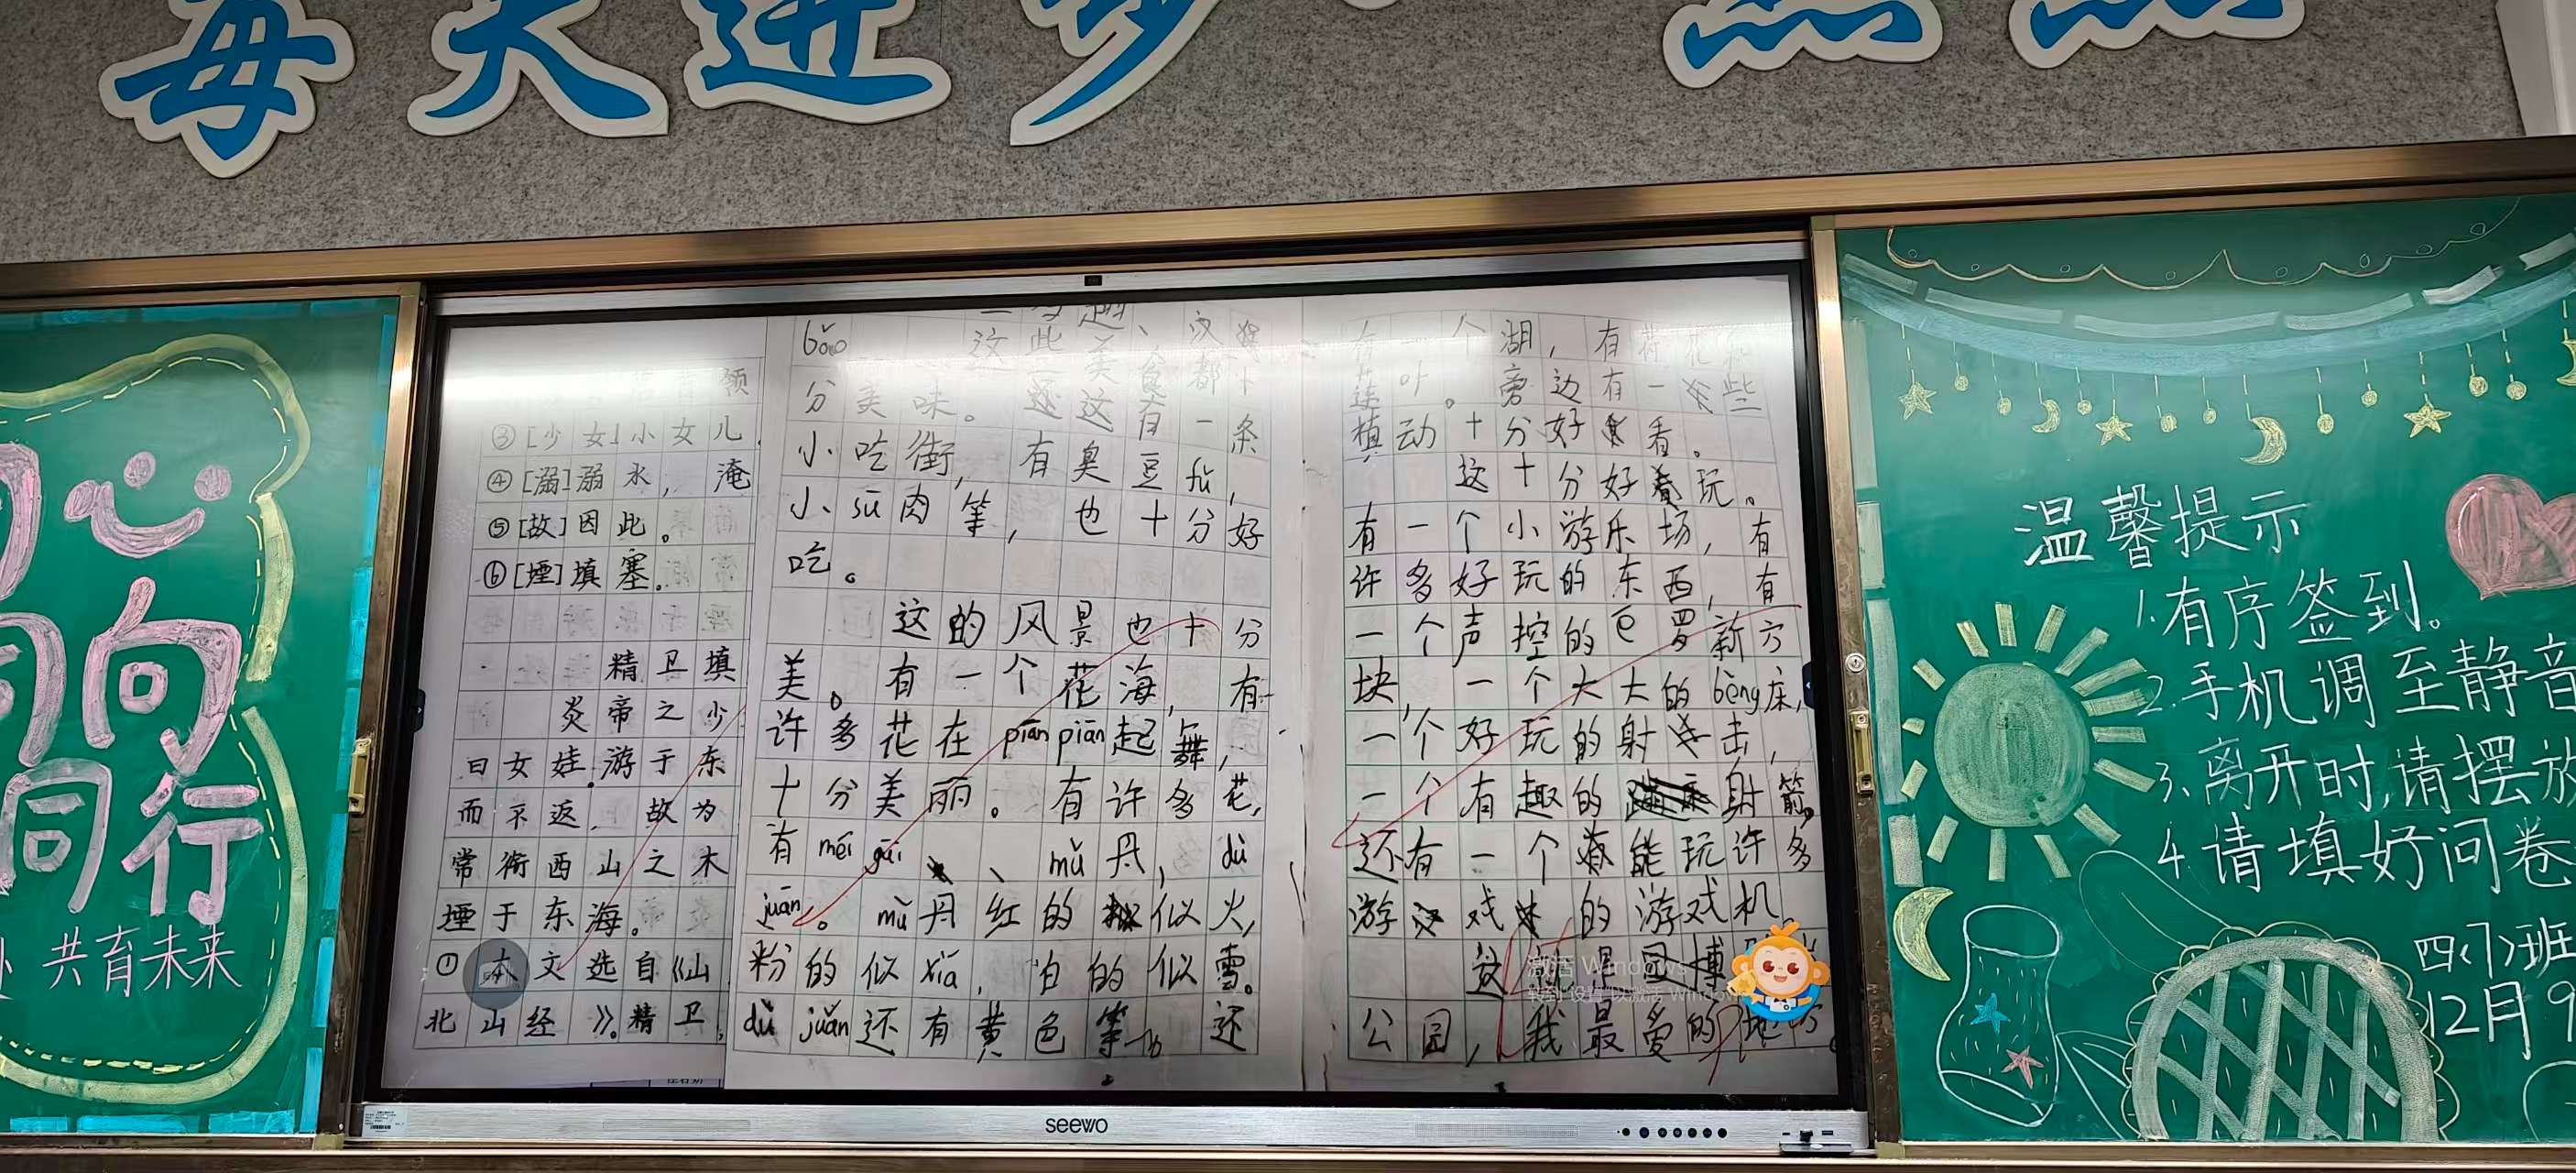 每天进步
领
③[少女]小女儿.
④[溺]溺水，淹
⑤[故]因此。
⑥[堙]填塞。
精卫填
炎帝之少
曰女娃.游于东
而不返，故为
常衔西山之木
堙于东海。
①本文选自《山
北山经》。精卫，
bǎo 这些美食、汉都十
分美味。还这有一条
小吃街，有臭豆fǔ，
小sū肉等，也十分好
吃。
这的风景也十分
美。有一个花海，有
许多花在piān piān起舞，
十分美丽。有许多花，
有méi gūi、mǔ丹，dù
juān。mǔ丹红的似火，
粉的似xiá，白的似雪。
dù juān还有黄色等。还
有一个湖，有荷花和
莲叶。旁边有一些
植动十分好看。
这十分好玩。
有一个小游乐场，有
许多好玩的东西，有
一个声控的巴罗新方
块，一个大大的bèng床，
一个好玩的射击，
一个有趣的射箭。
还有一个能玩许多
游戏的游戏机
这就是园博
公园，我最爱的地方
激活 Windows
转到"设置"以激活 Windows
seewo
向
同行
共育未来
温馨提示
1.有序签到。
2.手机调至静音
3.离开时,请摆放
4.请填好问卷
四<7>班
12月9